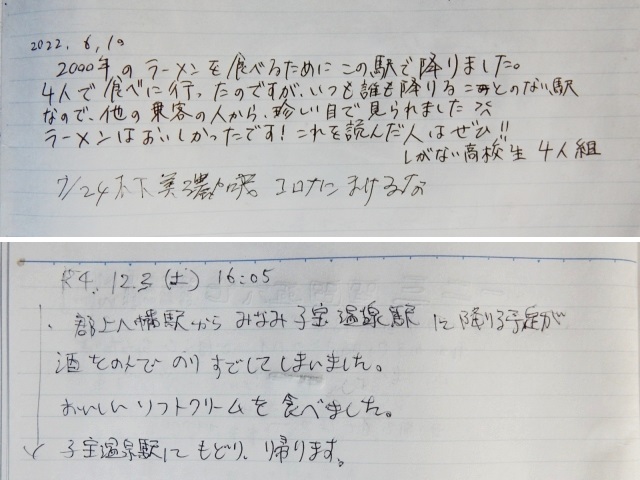 2022.6.19
2000年のラーメンを食べるためにこの駅で降りました。
4人で食べに行ったのですが、いつも誰も降りることのない駅
なので、他の乗客の人から、珍しい目で見られました
ラーメンはおいしかったです!これを読んだ人はぜひ!!
しがない高校生 4人組
7/24 木下美濃 コロナにまけるな
R4. 12.3 (土) 16:05
郡上八幡駅から みなみ子宝温泉駅に降りる予定が
酒をのんで のりすごしてしまいました。
おいしい ソフトクリームを 食べました。
子宝温泉駅に もどり、帰ります。